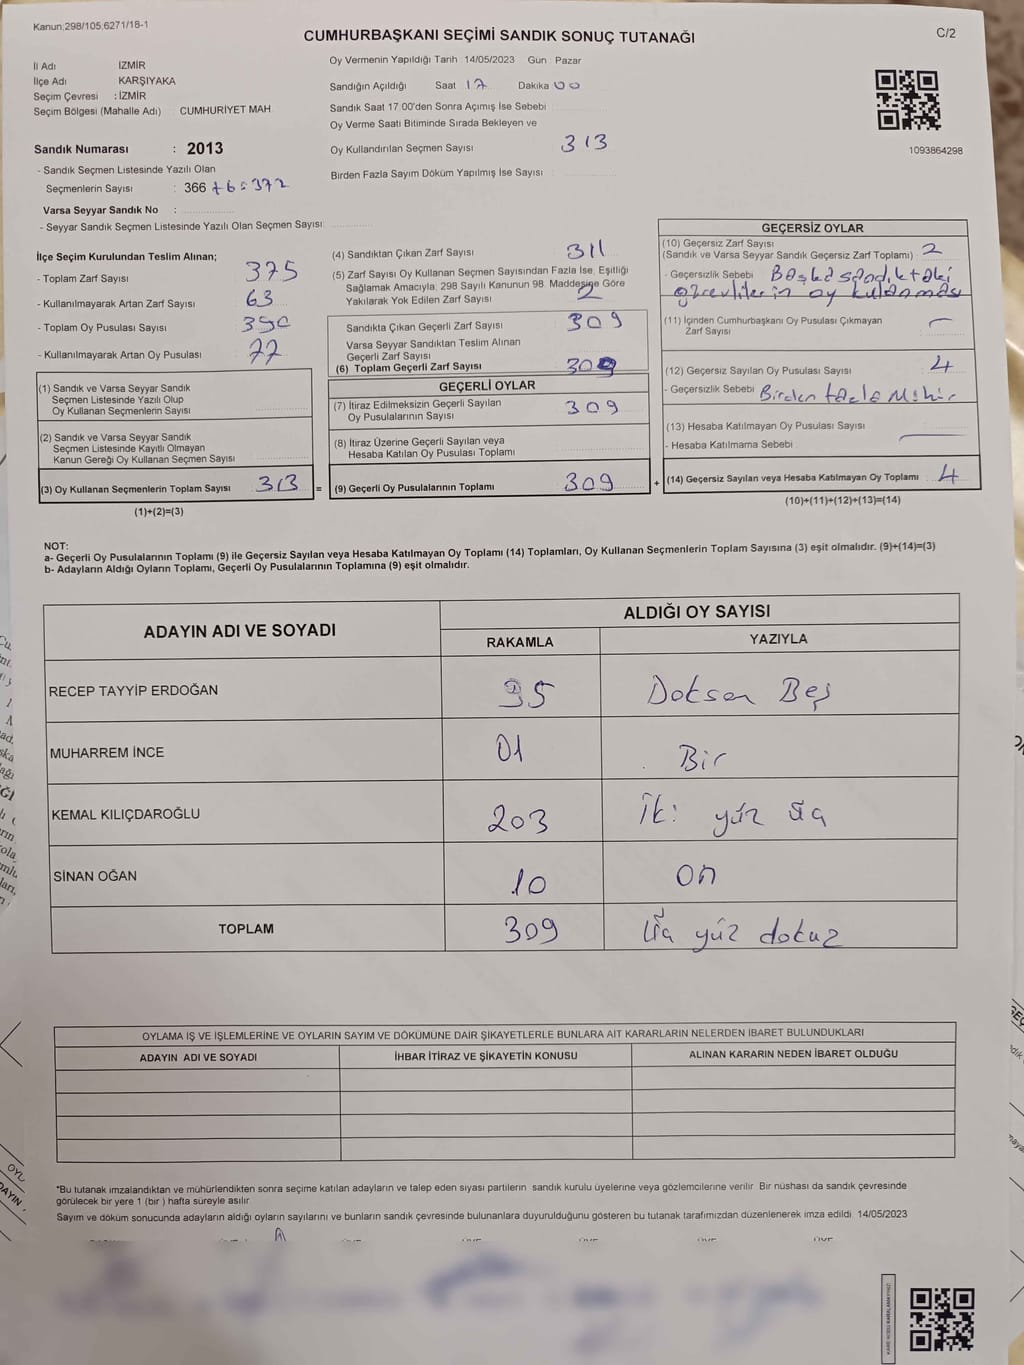 Kanun;298/105;6271/18-1
CUMHURBAŞKANI SEÇİMİ SANDIK SONUÇ TUTANAĞI
C/2
İl Adı İZMİR
İlçe Adı KARŞIYAKA
Seçim Çevresi : İZMİR
Seçim Bölgesi (Mahalle Adı) : CUMHURİYET MAH
Sandık Numarası : 2013
- Sandık Seçmen Listesinde Yazılı Olan
Seçmenlerin Sayısı : 366 +6=372
Varsa Seyyar Sandık No :
- Seyyar Sandık Seçmen Listesinde Yazılı Olan Seçmen Sayısı
Oy Vermenin Yapıldığı Tarih : 14/05/2023 Gün : Pazar
Sandığın Açıldığı Saat 17 Dakika 00
Sandık Saat 17:00'den Sonra Açımış İse Sebebi
Oy Verme Saati Bitiminde Sırada Bekleyen ve
Oy Kullandırılan Seçmen Sayısı 313
Birden Fazla Sayım Döküm Yapılmış İse Sayısı
1093864298
İlçe Seçim Kurulundan Teslim Alınan;
- Toplam Zarf Sayısı 375
- Kullanılmayarak Artan Zarf Sayısı 63
- Toplam Oy Pusulası Sayısı 390
- Kullanılmayarak Artan Oy Pusulası 77
(1) Sandık ve Varsa Seyyar Sandık
Seçmen Listesinde Yazılı Olup
Oy Kullanan Seçmenlerin Sayısı
(2) Sandık ve Varsa Seyyar Sandık
Seçmen Listesinde Kayıtlı Olmayan
Kanun Gereği Oy Kullanan Seçmen Sayısı
(3) Oy Kullanan Seçmenlerin Toplam Sayısı 313 =
(1)+(2)=(3)
(4) Sandıktan Çıkan Zarf Sayısı 311
(5) Zarf Sayısı Oy Kullanan Seçmen Sayısından Fazla İse, Eşitliği
Sağlamak Amacıyla, 298 Sayılı Kanunun 98. Maddesine Göre
Yakılarak Yok Edilen Zarf Sayısı 2
Sandıkta Çıkan Geçerli Zarf Sayısı 309
Varsa Seyyar Sandıktan Teslim Alınan
Geçerli Zarf Sayısı
(6) Toplam Geçerli Zarf Sayısı 309
GEÇERLİ OYLAR
(7) İtiraz Edilmeksizin Geçerli Sayılan
Oy Pusulalarının Sayısı 309
(8) İtiraz Üzerine Geçerli Sayılan veya
Hesaba Katılan Oy Pusulası Toplamı
(9) Geçerli Oy Pusulalarının Toplamı 309 +
GEÇERSİZ OYLAR
(10) Geçersiz Zarf Sayısı
(Sandık ve Varsa Seyyar Sandık Geçersiz Zarf Toplamı) 2
- Geçersizlik Sebebi Başka sandıktaki
görevlilerin oy kullanması
(11) İçinden Cumhurbaşkanı Oy Pusulası Çıkmayan
Zarf Sayısı -
(12) Geçersiz Sayılan Oy Pusulası Sayısı 4
- Geçersizlik Sebebi Birden fazla Mühür
(13) Hesaba Katılmayan Oy Pusulası Sayısı
- Hesaba Katılmama Sebebi
(14) Geçersiz Sayılan veya Hesaba Katılmayan Oy Toplamı 4
(10)+(11)+(12)+(13)=(14)
NOT:
a- Geçerli Oy Pusulalarının Toplamı (9) ile Geçersiz Sayılan veya Hesaba Katılmayan Oy Toplamı (14) Toplamları, Oy Kullanan Seçmenlerin Toplam Sayısına (3) eşit olmalıdır. (9)+(14)=(3)
b- Adayların Aldığı Oyların Toplamı, Geçerli Oy Pusulalarının Toplamına (9) eşit olmalıdır.
ADAYIN ADI VE SOYADI
ALDIĞI OY SAYISI
RAKAMLA YAZIYLA
RECEP TAYYİP ERDOĞAN 95 Doksan Beş
MUHARREM İNCE 01 Bir
KEMAL KILIÇDAROĞLU 203 İki yüz üç
SİNAN OĞAN 10 on
TOPLAM 309 Üç yüz dokuz
OYLAMA İŞ VE İŞLEMLERİNE VE OYLARIN SAYIM VE DÖKÜMÜNE DAİR ŞİKAYETLERLE BUNLARA AİT KARARLARIN NELERDEN İBARET BULUNDUKLARI
ADAYIN ADI VE SOYADI İHBAR İTİRAZ VE ŞİKAYETİN KONUSU ALINAN KARARIN NEDEN İBARET OLDUĞU
*Bu tutanak imzalandıktan ve mühürlendikten sonra seçime katılan adayların ve talep eden siyası partilerin sandık kurulu üyelerine veya gözlemcilerine verilir. Bir nüshası da sandık çevresinde
görülecek bir yere 1 (bir ) hafta süreyle asılır.
Sayım ve döküm sonucunda adayların aldığı oyların sayılarını ve bunların sandık çevresinde bulunanlara duyurulduğunu gösteren bu tutanak tarafımızdan düzenlenerek imza edildi. 14/05/2023